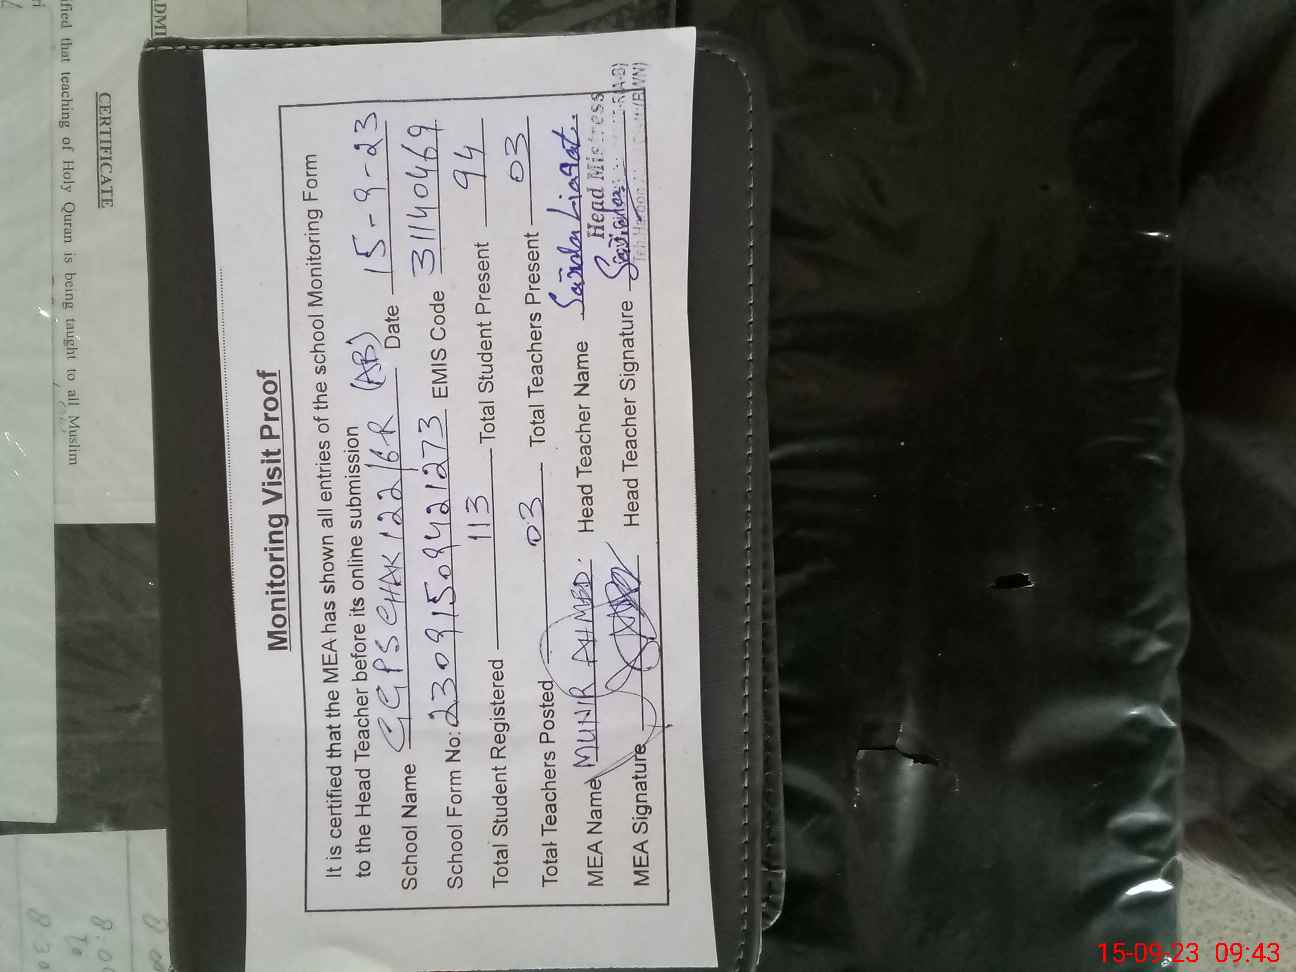 Monitoring Visit Proof
It is certified that the MEA has shown all entries of the school Monitoring Form
to the Head Teacher before its online submission
School Name GGPS CHAK 122/6R (AB) Date 15-9-23
School Form No: 23091509421273 EMIS Code 31140469
Total Student Registered 113 Total Student Present 94
Total Teachers Posted 03 Total Teachers Present 03
MEA Name MUNIR AHMED. Head Teacher Name Sairla Liaqat.
Head Mistress
MEA Signature Head Teacher Signature
CERTIFICATE
ified that teaching of Holy Quran is being taught to all Muslim
15-09-23 09:43